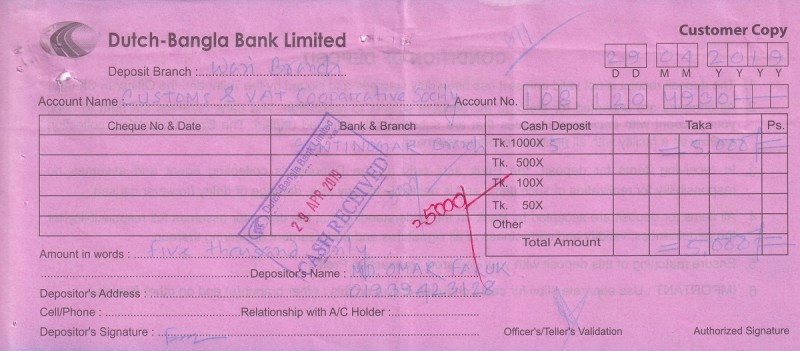 Dutch-Bangla Bank Limited
Customer Copy
29 04 2019
D D M M Y Y Y Y
Deposit Branch : Wari Branch
Account Name : Customs & VAT Cooperative Society Account No. 108 120
Cheque No & Date Bank & Branch Cash Deposit Taka Ps.
Branch Tk. 1000X 5 = 5,000/=
Tk. 500X
Tk. 100X
Tk. 50X
Other
Total Amount = 5,000/=
Dutch-Bangla Bank Limited
29 APR 2019
CASH RECEIVED
5000/
Amount in words : five thousand only
Depositor's Name : MD. OMAR FARUK
Depositor's Address : 01939423128
Cell/Phone : Relationship with A/C Holder :
Depositor's Signature :
Officer's/Teller's Validation Authorized Signature